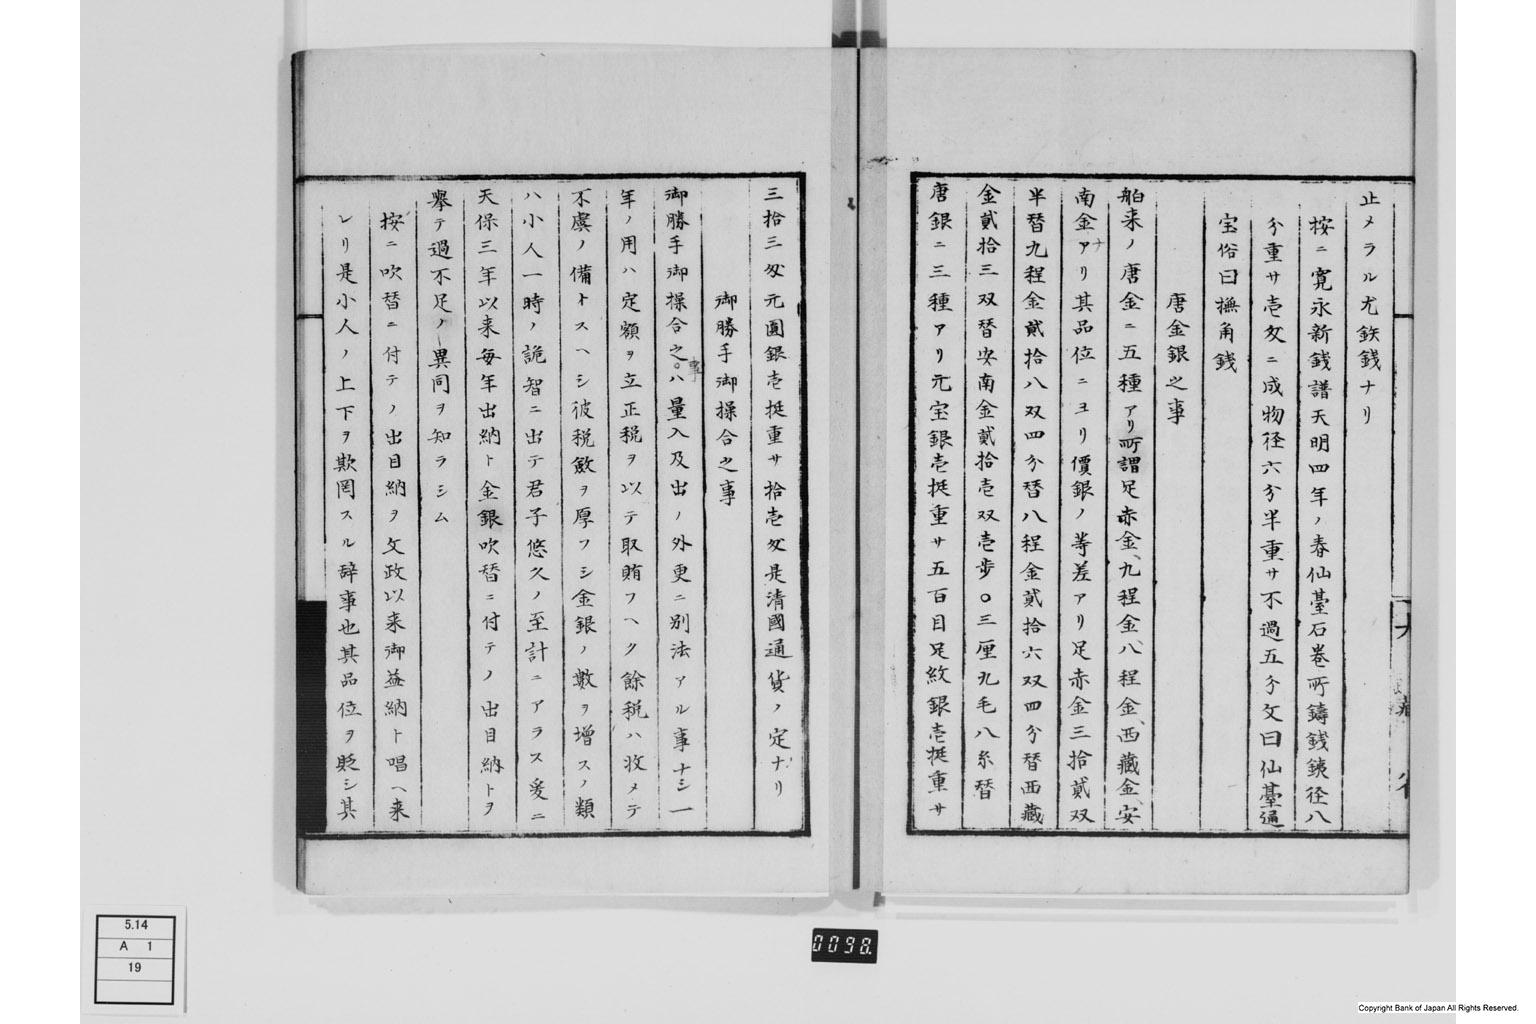 止メラル尤鉄銭ナリ
按ニ寛永新銭譜天明四年ノ春仙臺石巻所鑄銭銕径八
分重サ壱匁ニ成物径六分半重サ不過五分文曰仙臺通
宝俗曰撫角銭
唐金銀之事
舶来ノ唐金ニ五種アリ所謂足赤金、九程金、八程金、西藏金、安
南金アリ其品位ニヨリ價銀ノ等差アリ足赤金三拾貳双
半替九程金貳拾八双四分替八程金貳拾六双四分替西藏
金貳拾三双替安南金貳拾壱双壱歩〇三厘九毛八糸替
唐銀ニ三種アリ元宝銀壱挺重サ五百目足紋銀壱挺重サ
三拾三匁元圓銀壱挺重サ拾壱匁是清國通貨ノ定ナリ
御勝手御操合之事
御勝手御操合之事ハ量入及出ノ外更ニ別法アル事ナシ一
年ノ用ハ定額ヲ立正税ヲ以テ取賄フヘク餘税ハ收メテ
不虞ノ備トスヘシ彼税斂ヲ厚フシ金銀ノ數ヲ増スノ類
ハ小人一時ノ詭智ニ出テ君子悠久ノ至計ニアラス爰ニ
天保三年以来毎年出納ト金銀吹替ニ付テノ出目納トヲ
擧テ過不足ノ異同ヲ知ラシム
按ニ吹替ニ付テノ出目納ヲ文政以来御益納ト唱ヘ来
レリ是小人ノ上下ヲ欺罔スル辞事也其品位ヲ貶シ其
5.14
A 1
19
0098.
Copyright Bank of Japan All Rights Reserved.